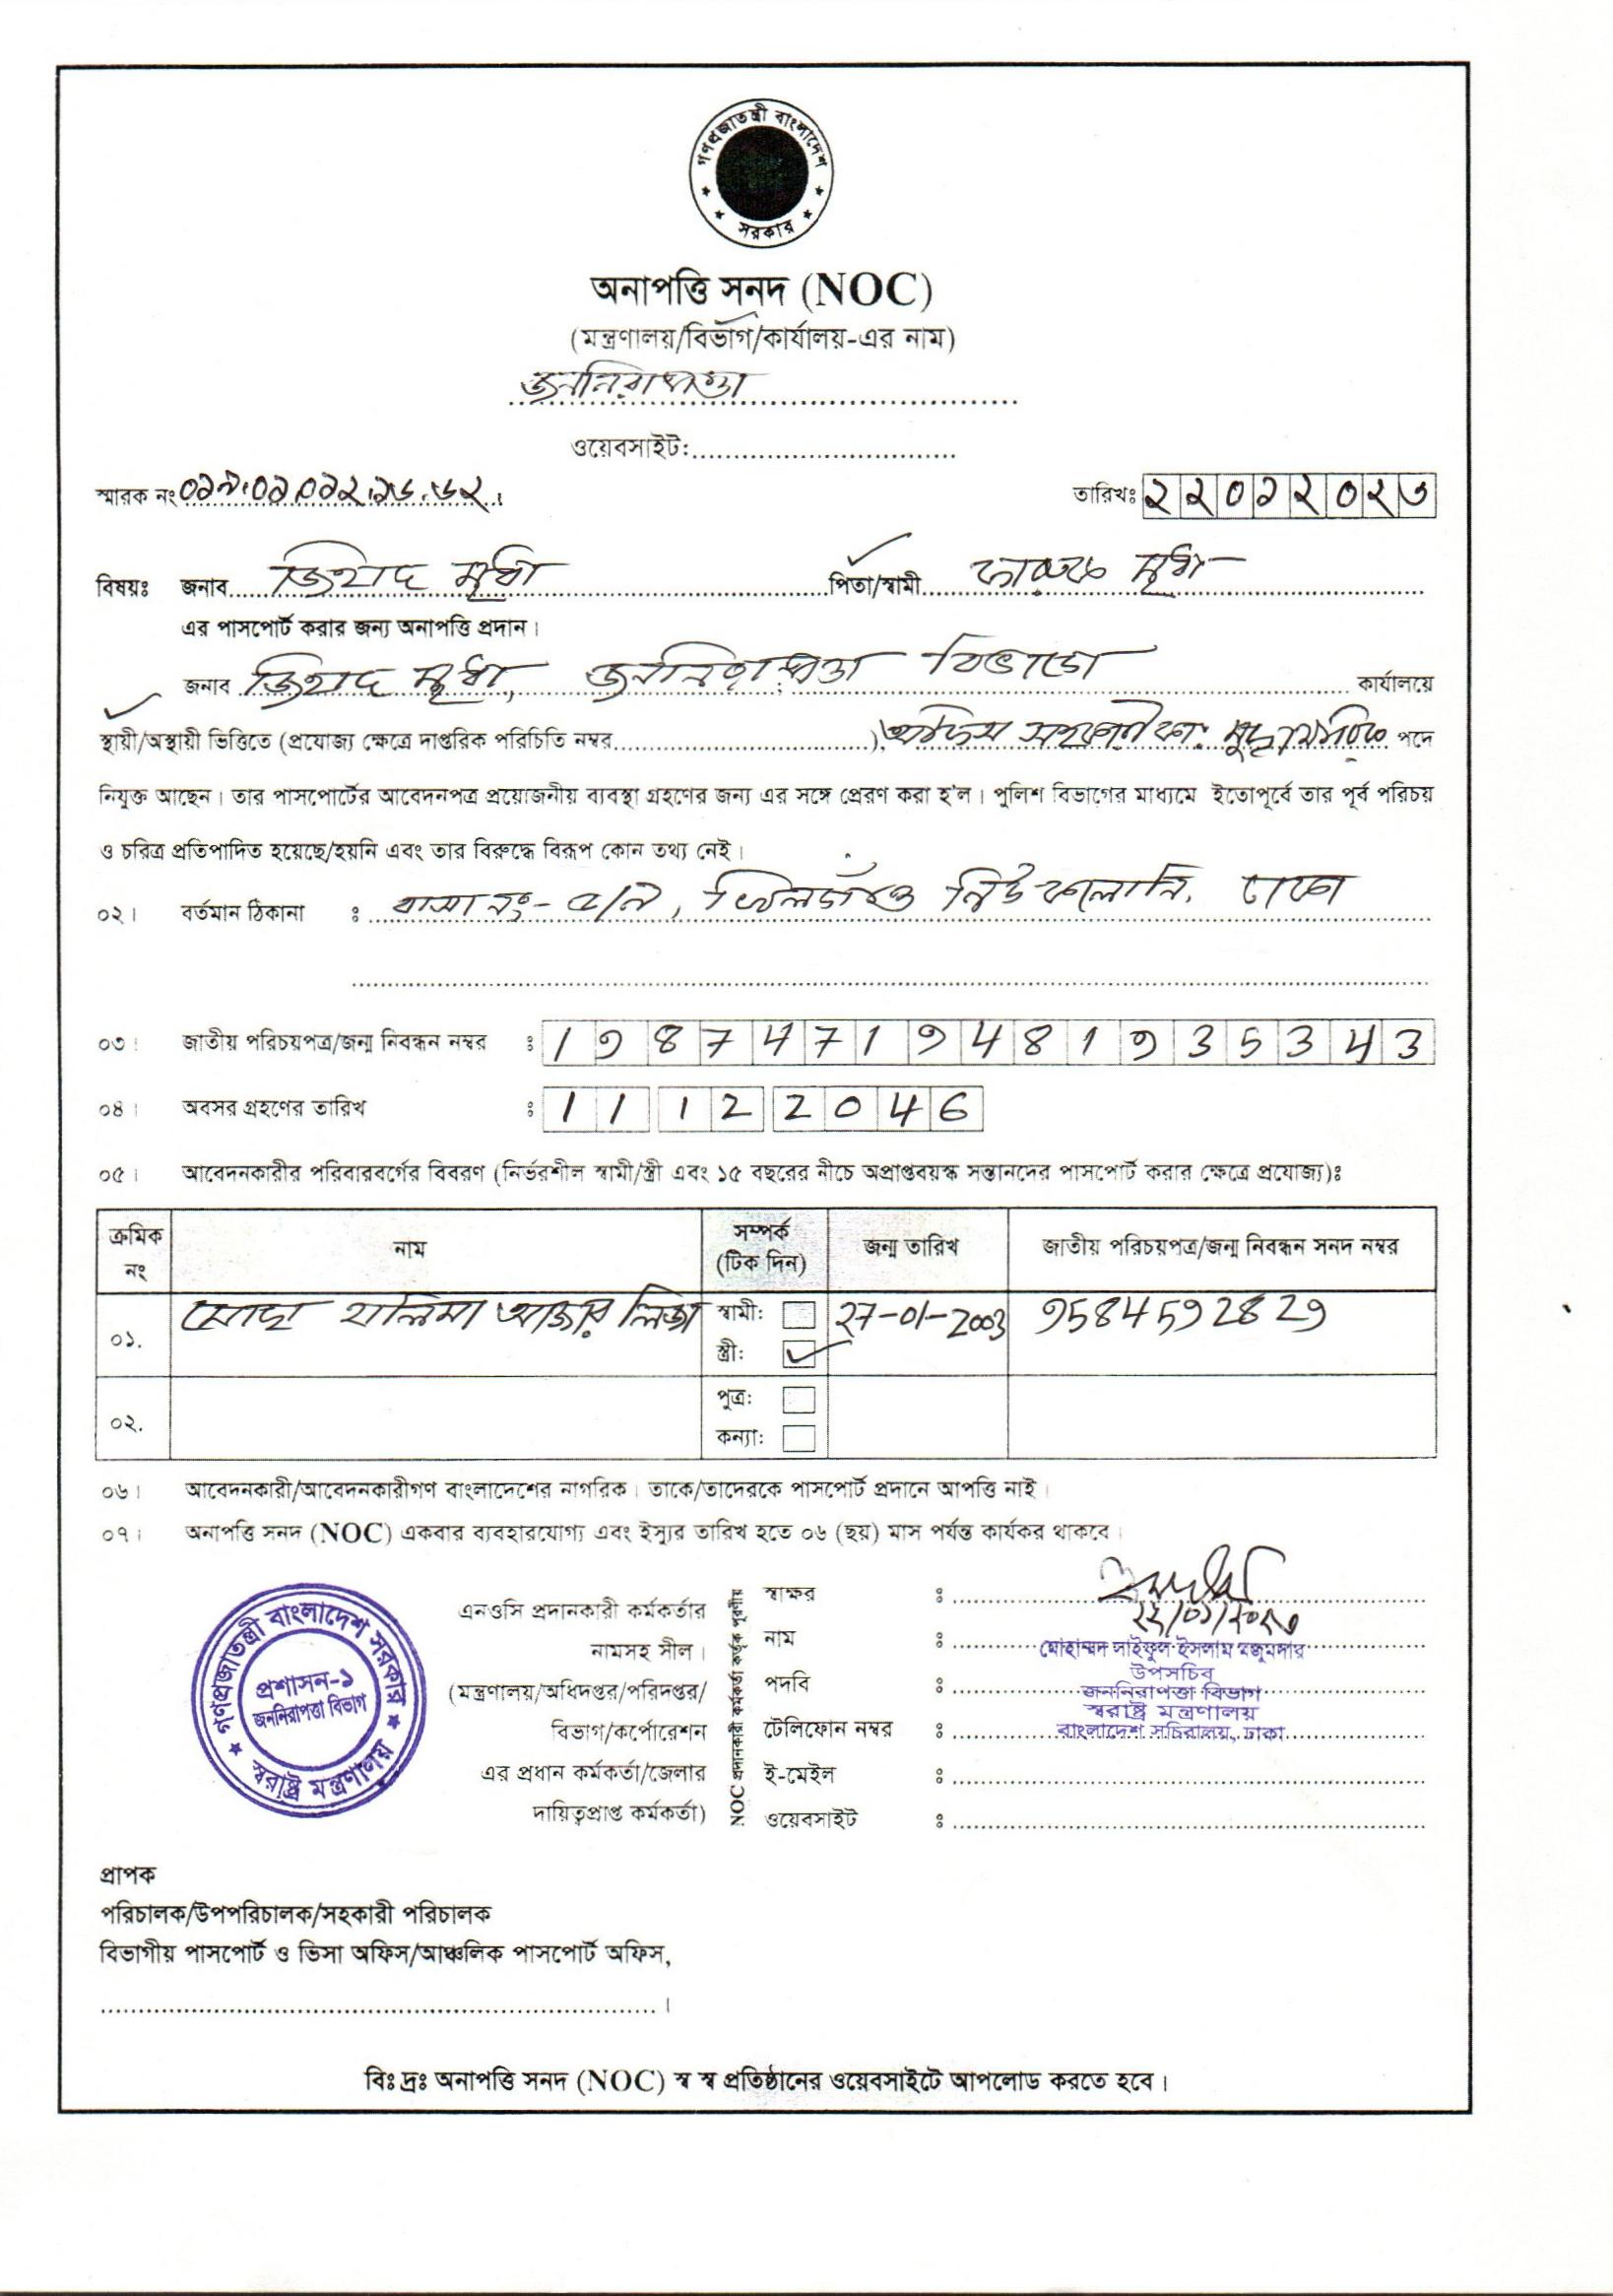 গণপ্রজাতন্ত্রী বাংলাদেশ
সরকার
অনাপত্তি সনদ (NOC)
(মন্ত্রণালয়/বিভাগ/কার্যালয়-এর নাম)
জননিরাপত্তা
ওয়েবসাইট:
স্মারক নং
তারিখঃ ২২০১২০২৩
বিষয়ঃ জনাব জিহাদ মৃধা পিতা/স্বামী ফারুক মৃধা
এর পাসপোর্ট করার জন্য অনাপত্তি প্রদান।
জনাব জিহাদ মৃধা, জননিরাপত্তা বিভাগে কার্যালয়ে
স্থায়ী/অস্থায়ী ভিত্তিতে (প্রযোজ্য ক্ষেত্রে দাপ্তরিক পরিচিতি নম্বর ), অফিস সহকারী কাঃ মুদ্রাক্ষরিক পদে
নিযুক্ত আছেন। তার পাসপোর্টের আবেদনপত্র প্রয়োজনীয় ব্যবস্থা গ্রহণের জন্য এর সঙ্গে প্রেরণ করা হ'ল। পুলিশ বিভাগের মাধ্যমে ইতোপূর্বে তার পূর্ব পরিচয়
ও চরিত্র প্রতিপাদিত হয়েছে/হয়নি এবং তার বিরুদ্ধে বিরূপ কোন তথ্য নেই।
০২। বর্তমান ঠিকানা ঃ বাসা নং- খিলগাঁও নিউ কলোনি, ঢাকা
০৩। জাতীয় পরিচয়পত্র/জন্ম নিবন্ধন নম্বর ঃ 19874719481935343
০৪। অবসর গ্রহণের তারিখ ঃ 11 12 2046
০৫। আবেদনকারীর পরিবারবর্গের বিবরণ (নির্ভরশীল স্বামী/স্ত্রী এবং ১৫ বছরের নীচে অপ্রাপ্তবয়স্ক সন্তানদের পাসপোর্ট করার ক্ষেত্রে প্রযোজ্য)ঃ
ক্রমিক নং নাম সম্পর্ক (টিক দিন) জন্ম তারিখ জাতীয় পরিচয়পত্র/জন্ম নিবন্ধন সনদ নম্বর
০১. মোছাঃ হালিমা আক্তার লিজা স্বামী: 27-01-2003 9584592829
স্ত্রী:
০২. পুত্র:
কন্যা:
০৬। আবেদনকারী/আবেদনকারীগণ বাংলাদেশের নাগরিক। তাকে/তাদেরকে পাসপোর্ট প্রদানে আপত্তি নাই।
০৭। অনাপত্তি সনদ (NOC) একবার ব্যবহারযোগ্য এবং ইস্যুর তারিখ হতে ০৬ (ছয়) মাস পর্যন্ত কার্যকর থাকবে।
গণপ্রজাতন্ত্রী বাংলাদেশ সরকার
প্রশাসন-১
জননিরাপত্তা বিভাগ
স্বরাষ্ট্র মন্ত্রণালয়
এনওসি প্রদানকারী কর্মকর্তার
নামসহ সীল।
(মন্ত্রণালয়/অধিদপ্তর/পরিদপ্তর/
বিভাগ/কর্পোরেশন
এর প্রধান কর্মকর্তা/জেলার
দায়িত্বপ্রাপ্ত কর্মকর্তা)
NOC প্রদানকারী কর্মকর্তা কর্তৃক পূরণীয়
স্বাক্ষর ঃ
২২/০১/২০২৩
নাম ঃ মোহাম্মদ সাইফুল ইসলাম মজুমদার
উপসচিব
পদবি ঃ জননিরাপত্তা বিভাগ
স্বরাষ্ট্র মন্ত্রণালয়
টেলিফোন নম্বর ঃ বাংলাদেশ সচিবালয়, ঢাকা
ই-মেইল ঃ
ওয়েবসাইট ঃ
প্রাপক
পরিচালক/উপপরিচালক/সহকারী পরিচালক
বিভাগীয় পাসপোর্ট ও ভিসা অফিস/আঞ্চলিক পাসপোর্ট অফিস,
বিঃ দ্রঃ অনাপত্তি সনদ (NOC) স্ব স্ব প্রতিষ্ঠানের ওয়েবসাইটে আপলোড করতে হবে।